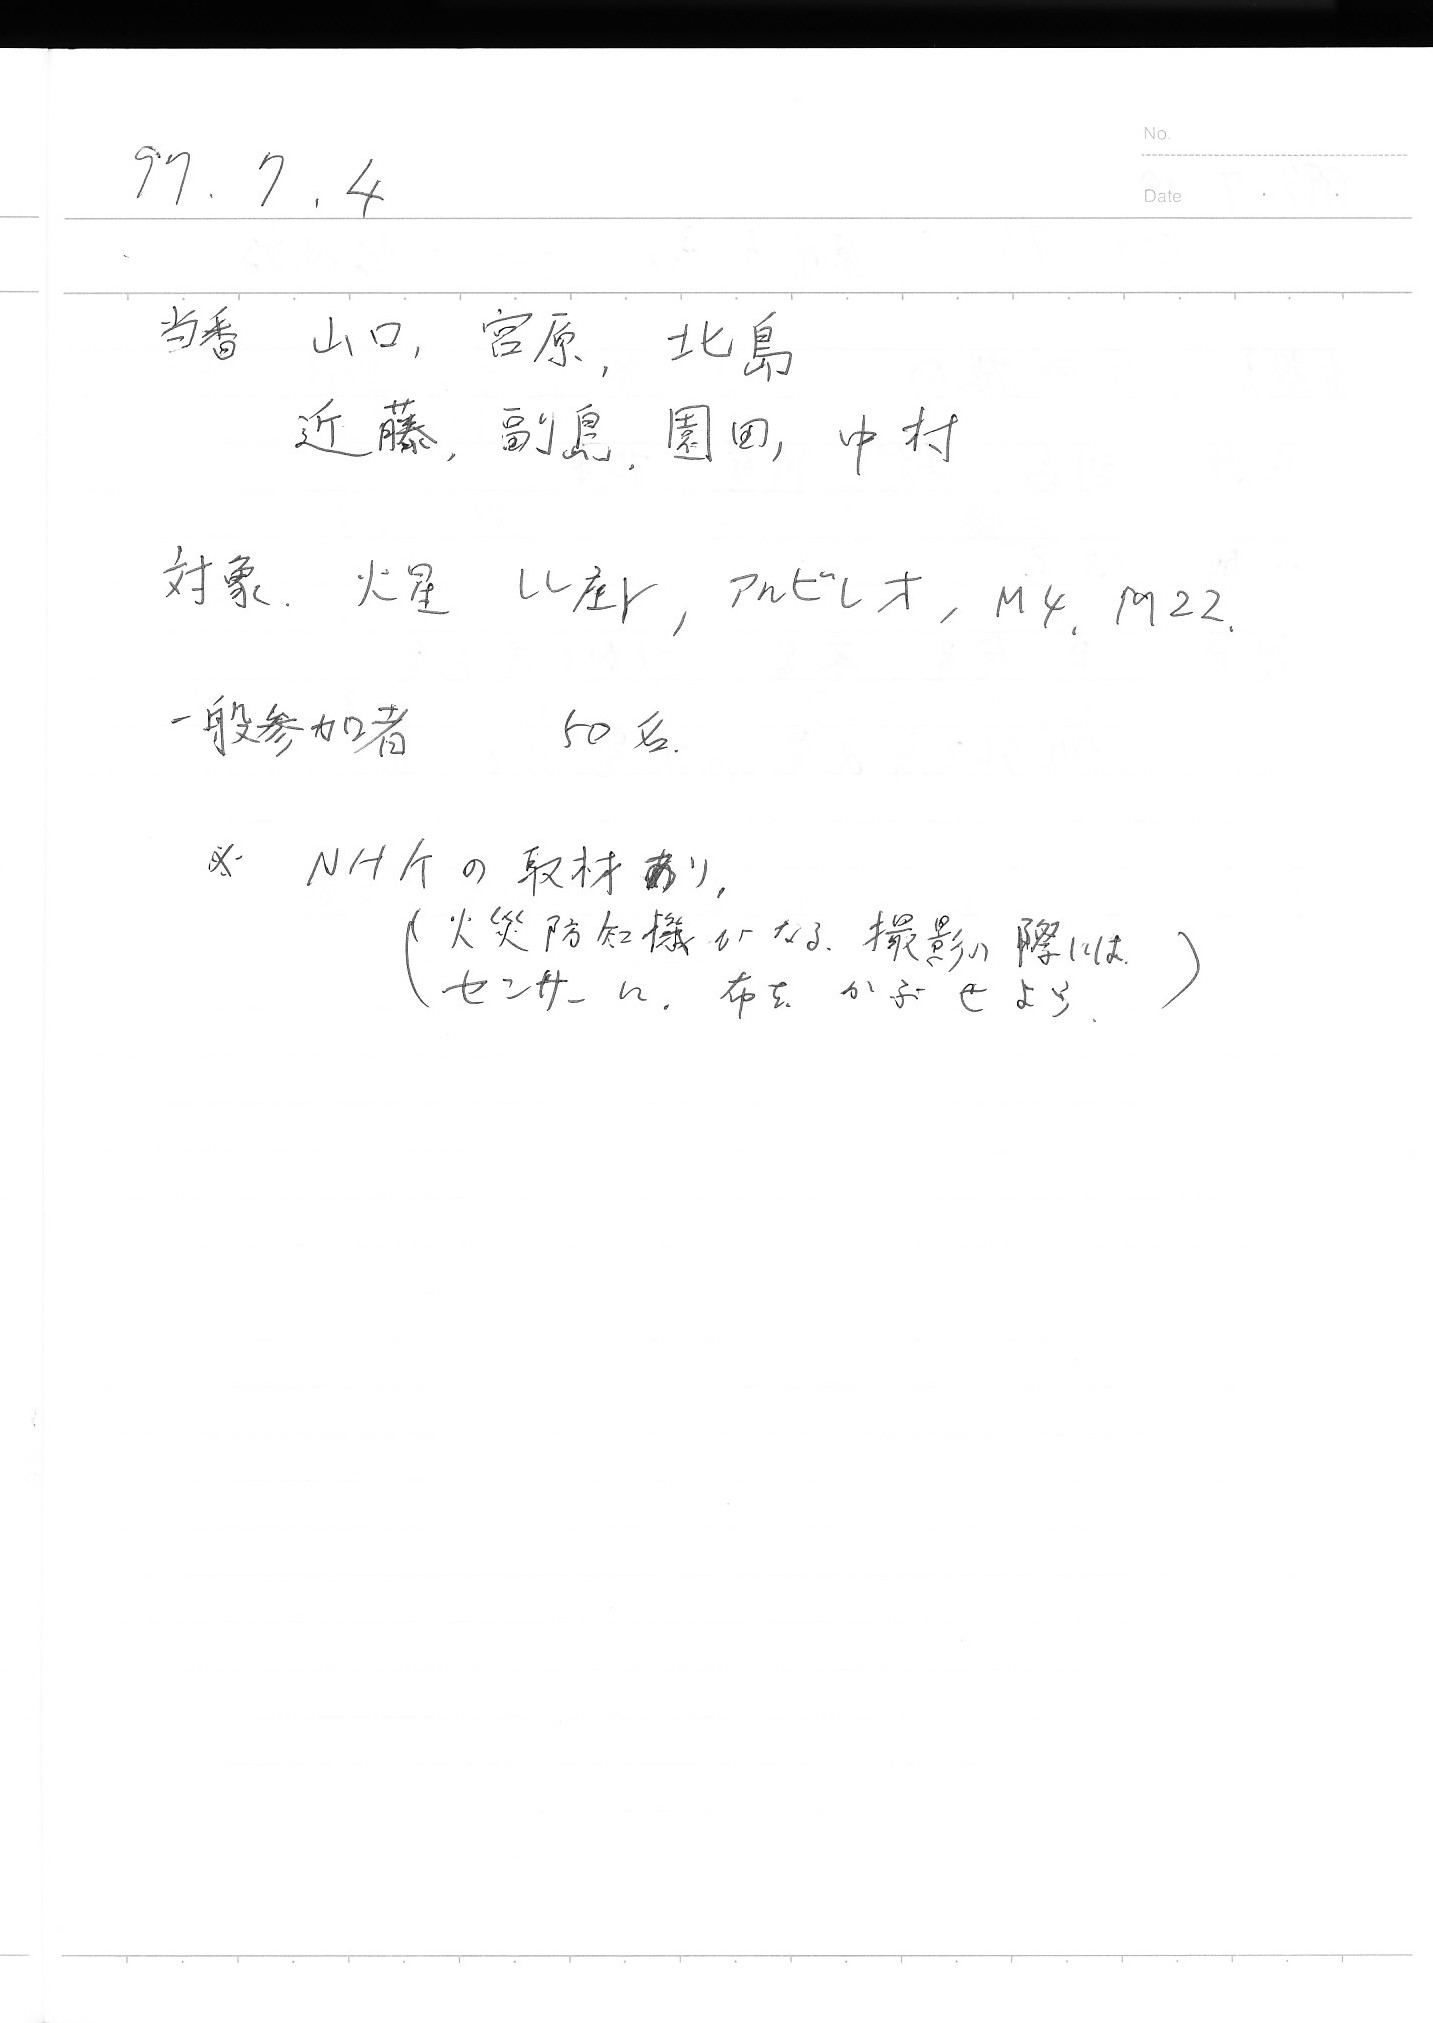 No.
97.7.4
Date
当番 山口, 宮原, 北島
近藤, 副島, 園田, 中村
対象. 火星 しし座γ, アルビレオ, M4. M22.
一般参加者 50名.
※ NHKの取材あり,
(火災防知機がなる. 撮影の際には.
センサーに. 布を かぶせよう.)